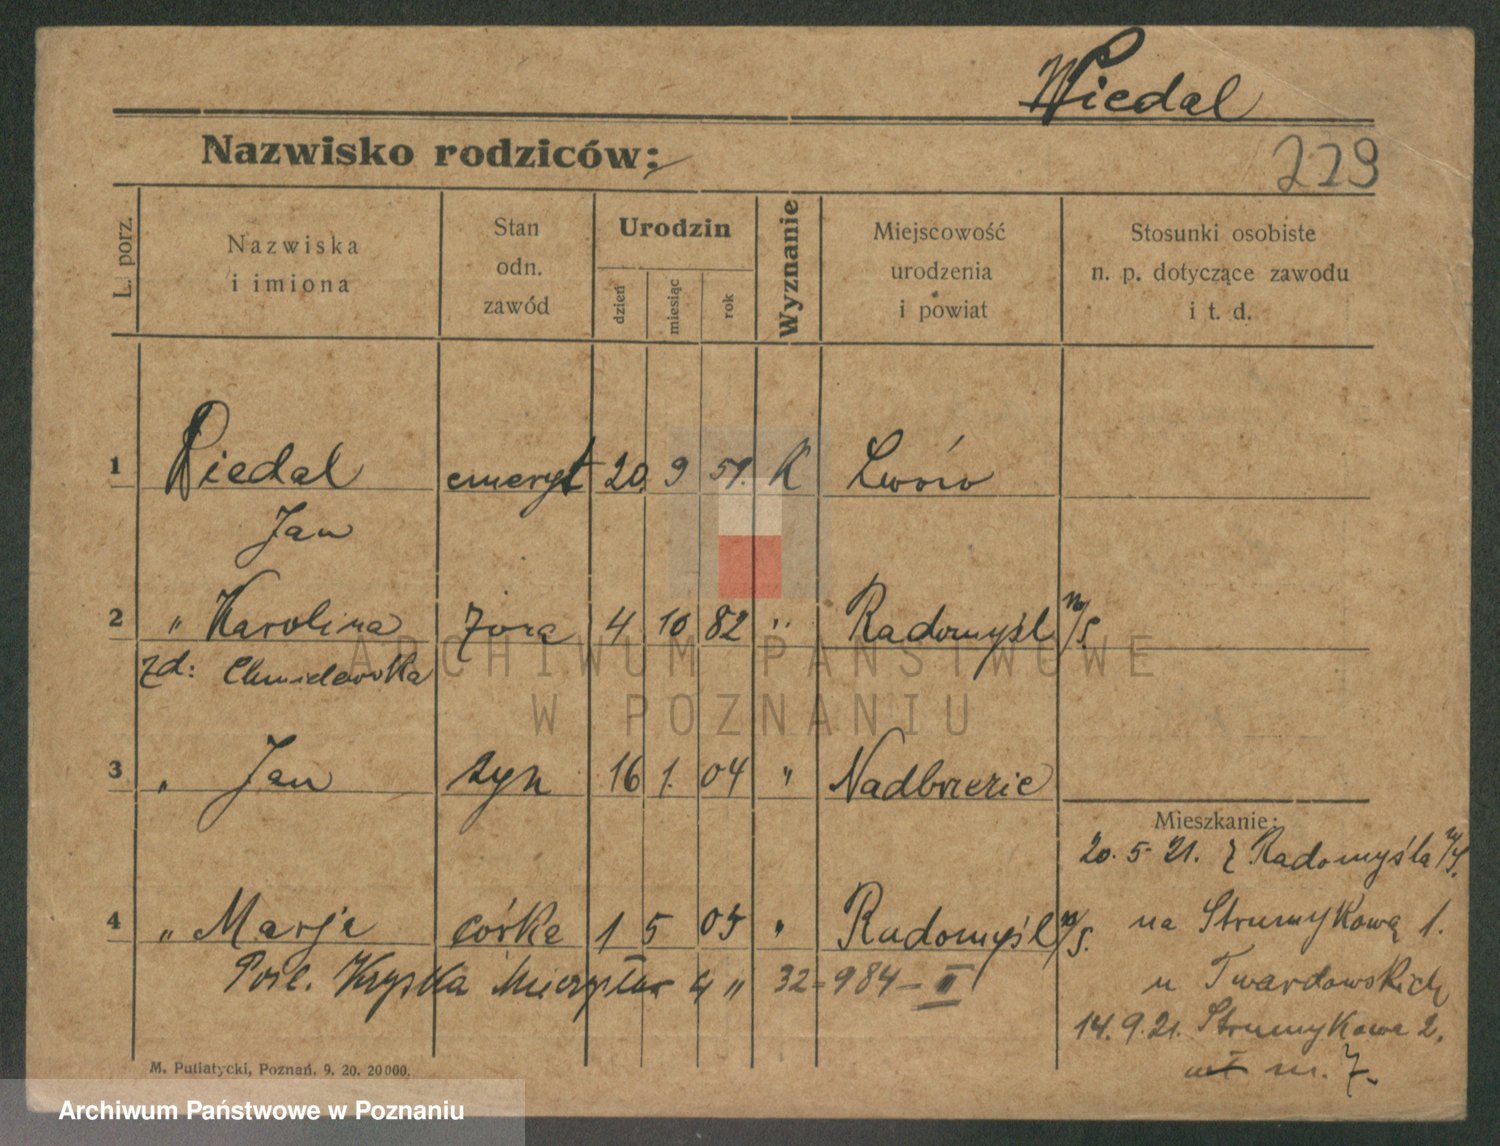 Wiedal
Nazwisko rodziców:
229
L. porz.
Nazwiska i imiona
Stan odn. zawód
Urodzin
dzień
miesiąc
rok
Wyznanie
Miejscowość urodzenia i powiat
Stosunki osobiste n. p. dotyczące zawodu i t. d.
1 Wiedal emeryt 20. 9 51. K Lwów
Jan
2 " Karolina żona 4 10 82 " Radomyśl n/S.
zd: Chmielewska
3 " Jan syn 16 1. 04 " Nadbrzezie
Mieszkanie:
20. 5. 21. z Radomyśla n/S.
4 " Marja córka 1 5 05 " Radomyśl n/S.
na Strumykową 1.
32-984-II
u Twardowskich
14. 9. 21. Strumykowa 2.
m. 7.
M. Putiatycki, Poznań. 9. 20. 20000.
ARCHIWUM PAŃSTWOWE
W POZNANIU
Archiwum Państwowe w Poznaniu